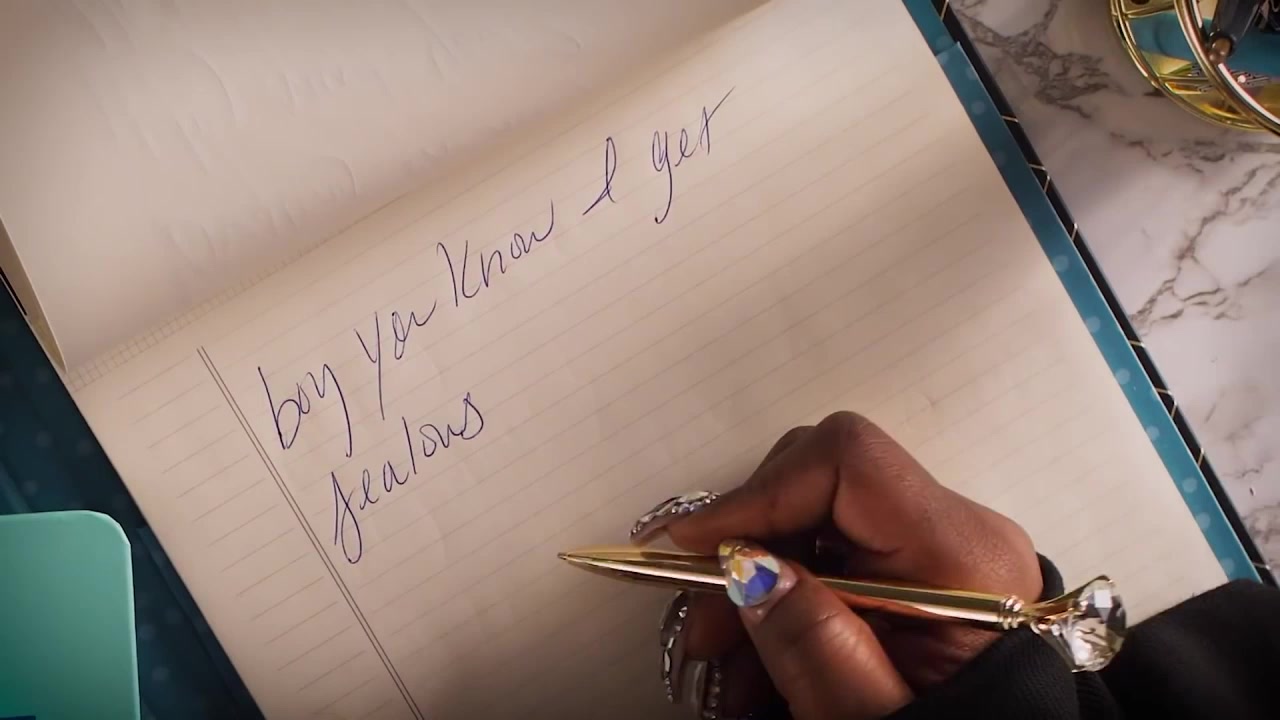 boy you know I get
jealous